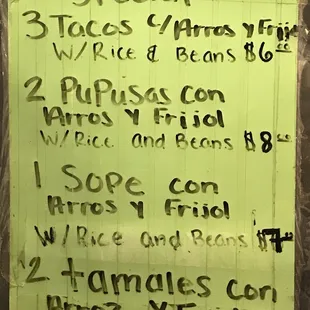 3 Tacos c/Arros y Frije
W/Rice & Beans $6.00
2 PuPusas con
Arros Y Frijol
W/Rice and Beans $8.00
1 Sope con
Arros Y Frijol
W/Rice and Beans $7.00
2 tamales con